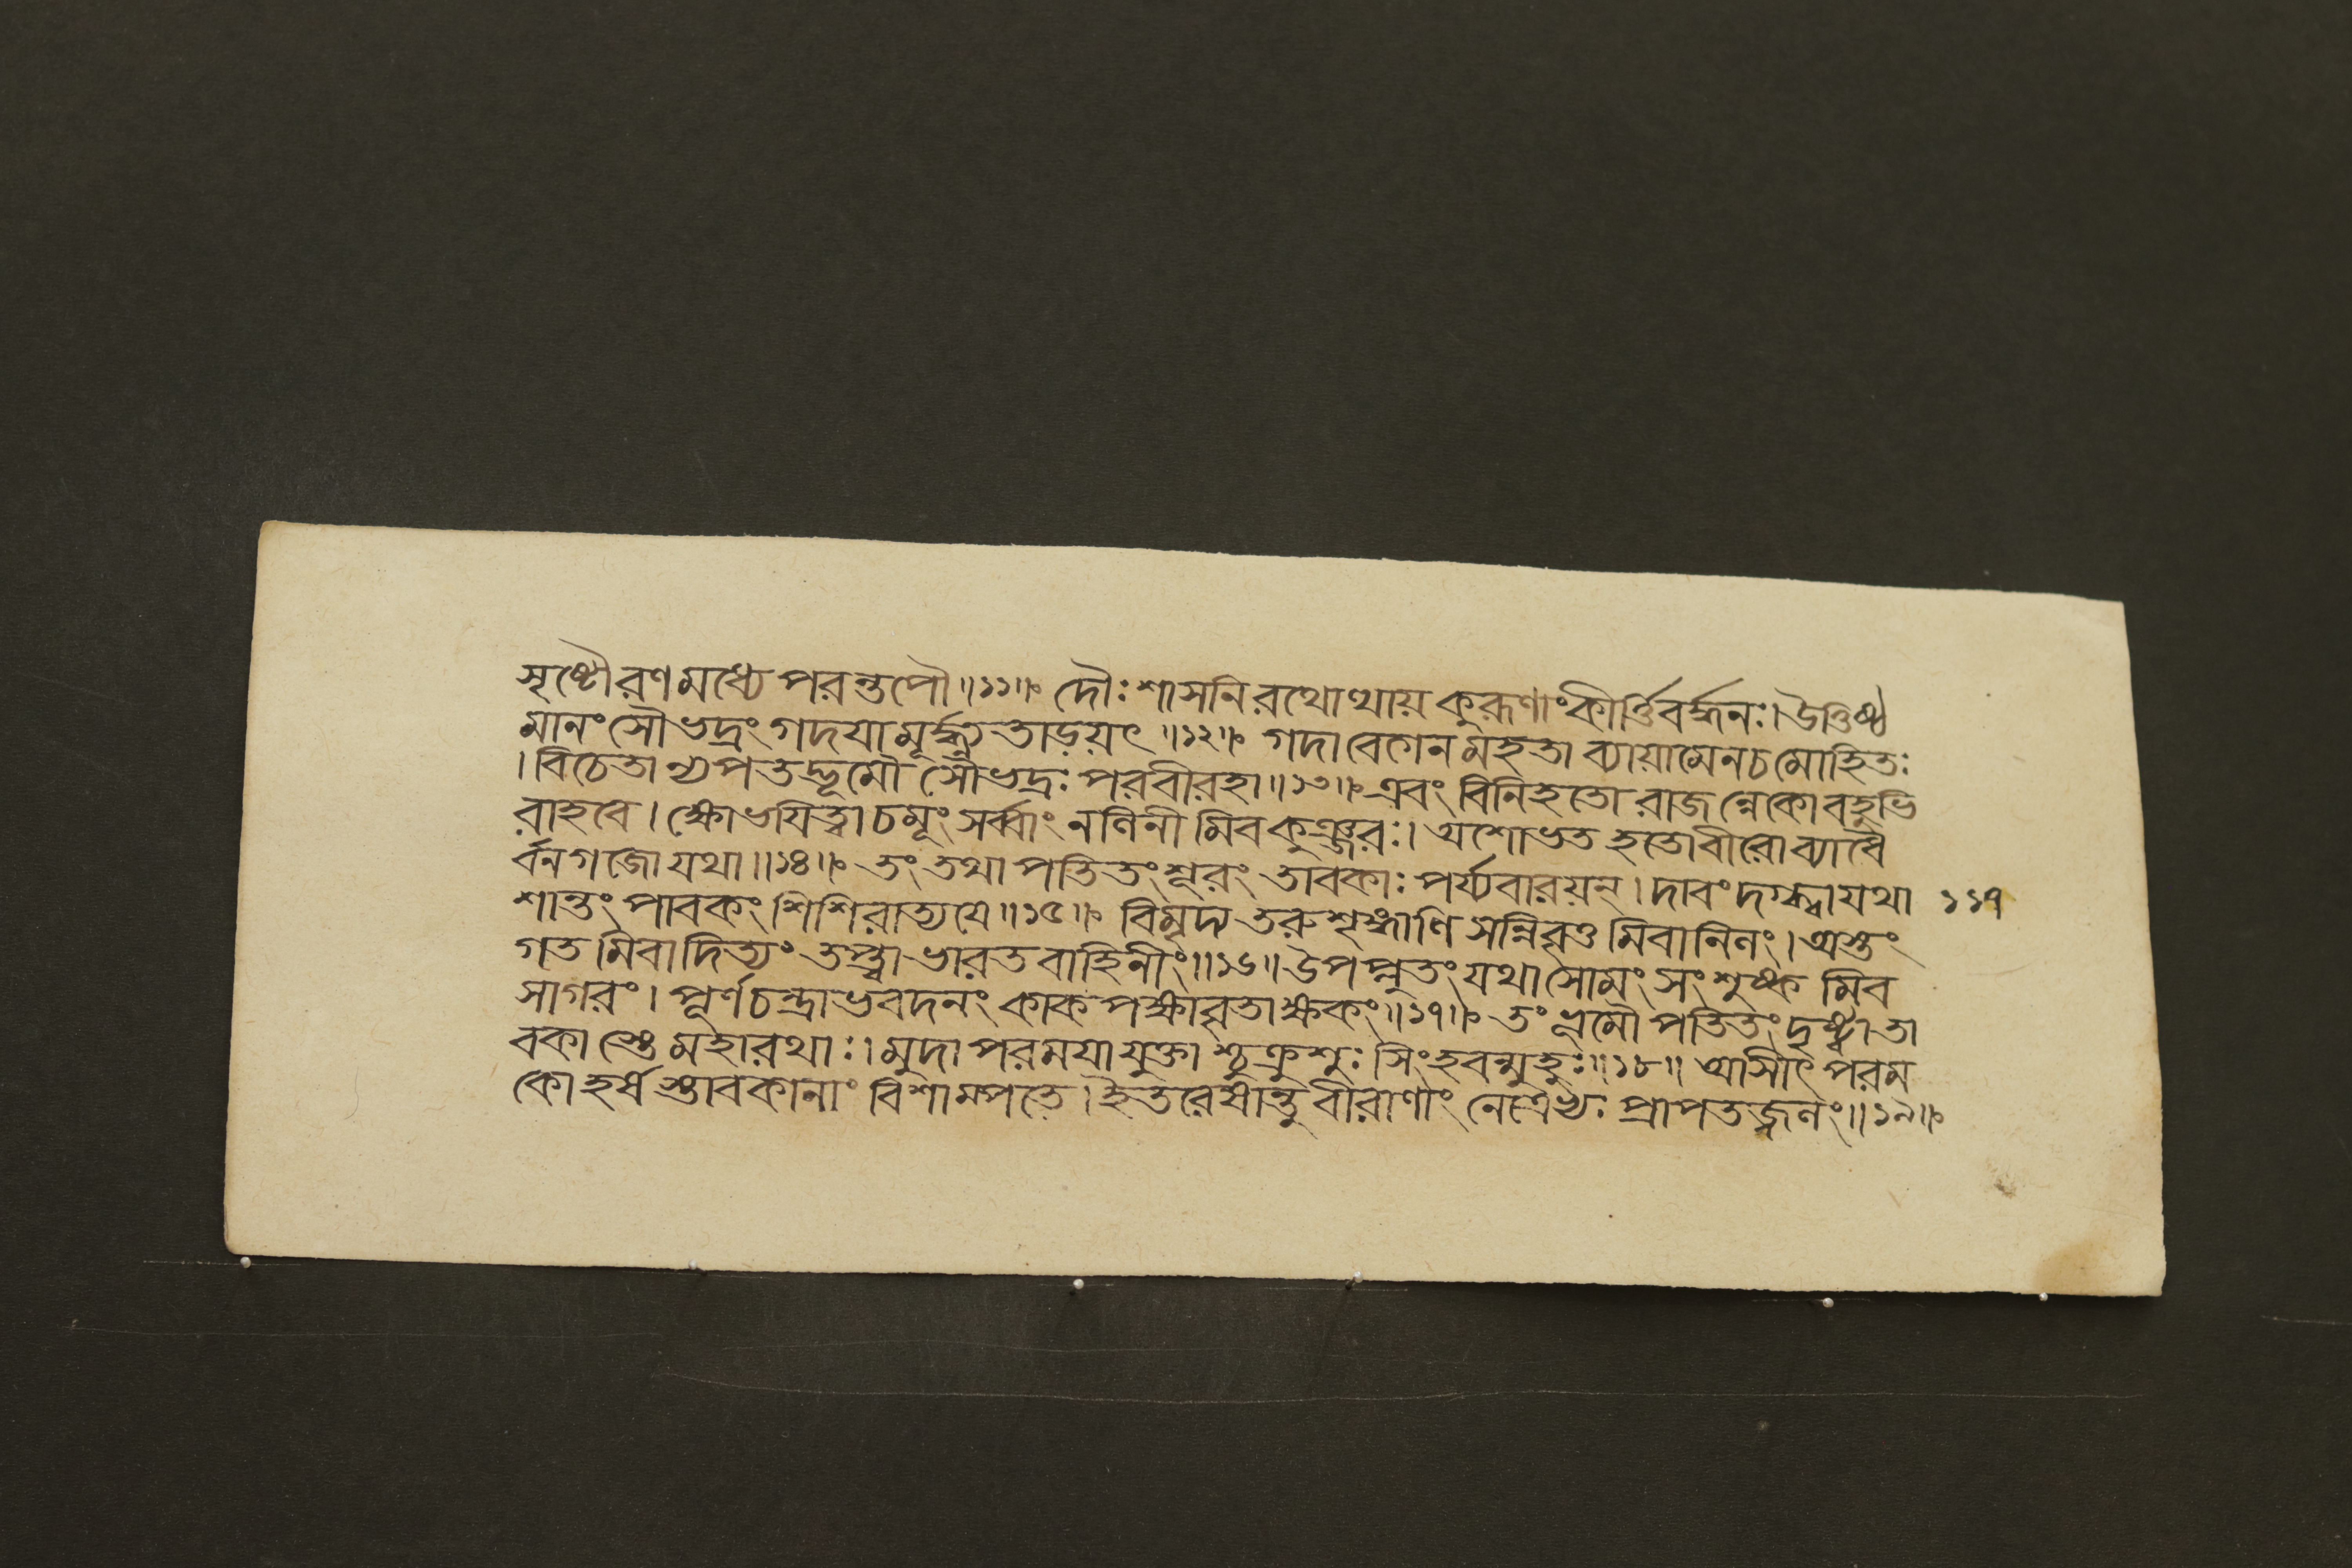 সৃষ্টৌরণমধ্যে পরন্তপৌ॥১১॥ দৌঃশাসনিরথোত্থায় কুরূণাংকীর্ত্তিবর্দ্ধনঃ। উত্তিষ্ঠ
মানং সৌভদ্রং গদযা মূর্দ্ধ্ন্যতাড়য়ৎ॥১২॥ গদাবেগেন মহতা ব্যায়ামেনচ মোহিতঃ
। বিচেতা ন্যপতদ্ভূমৌ সৌভদ্রঃ পরবীরহা॥১৩॥ এবং বিনিহতো রাজন্নেকো বহুভি
রাহবে। ক্ষোভযিত্বা চমূং সর্ব্বাং নলিনীমিব কুঞ্জরঃ। অশোভত হতোবীরো ব্যাধৈ
র্বনগজো যথা॥১৪॥ তং তথা পতিতংশূরং তাবকাঃ পর্য্যবারয়ন্। দাবং দগ্ধ্বা যথা ১১৭
শান্তং পাবকং শিশিরাত্যযে॥১৫॥ বিমৃদ্য তরুশৃঙ্গাণি সন্নিবৃত্তমিবানিলং। অস্তং
গতমিবাদিত্যং তপ্ত্বা ভারতবাহিনীং॥১৬॥ উপপ্লুতং যথাসোমং সংশুষ্কমিব
সাগরং। পূর্ণচন্দ্রাভবদনং কাকপক্ষাবৃতাক্ষকং॥১৭॥ তং ভূমৌ পতিতং দৃষ্ট্বা তা
বকাস্তে মহারথাঃ। মুদা পরমযাযুক্তা শ্চুক্রুশুঃ সিংহবন্মুহুঃ॥১৮॥ আসীৎ পরম
কোহর্ষস্তাবকানাং বিশাম্পতে। ইতরেষান্তু বীরাণাং নেত্রেভ্যঃ প্রাপতজ্জলং॥১৯॥